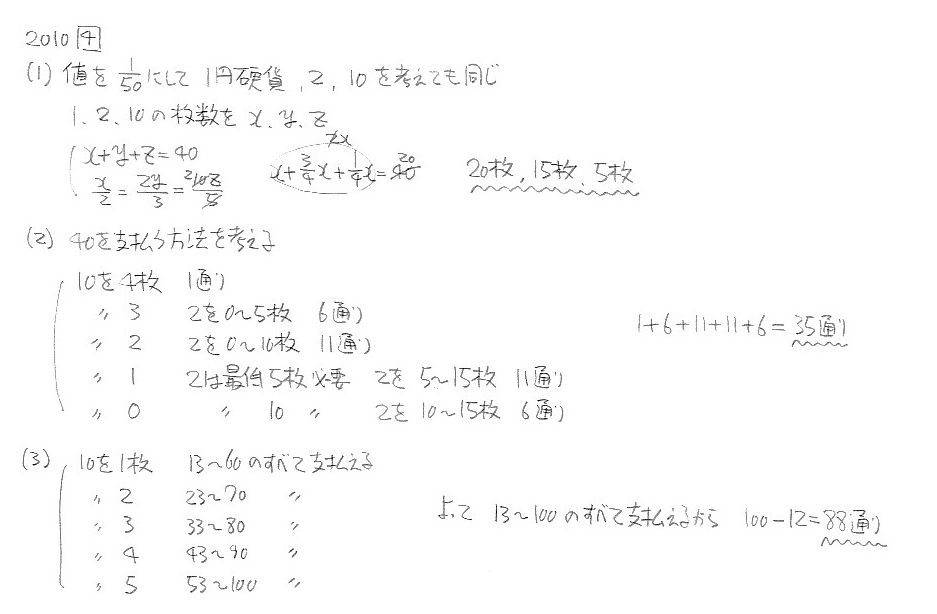 2010 4
(1) 値を 1/50 にして 1円硬貨, 2, 10を考えても同じ
1, 2, 10の枚数を x, y, z
x+y+z=40
x/2 = 2y/3 = 10z/5
x+3/4x+1/4x=40 20
2x
20枚, 15枚, 5枚
(2) 40を支払う方法を考える
10を4枚 1通り
〃 3 2を0~5枚 6通り
〃 2 2を0~10枚 11通り
〃 1 2は最低5枚必要 2を5~15枚 11通り
〃 0 〃 10 〃 2を10~15枚 6通り
1+6+11+11+6=35通り
(3) 10を1枚 13~60のすべて支払える
〃 2 23~70 〃
〃 3 33~80 〃
〃 4 43~90 〃
〃 5 53~100 〃
よって 13~100のすべて支払えるから 100-12=88通り